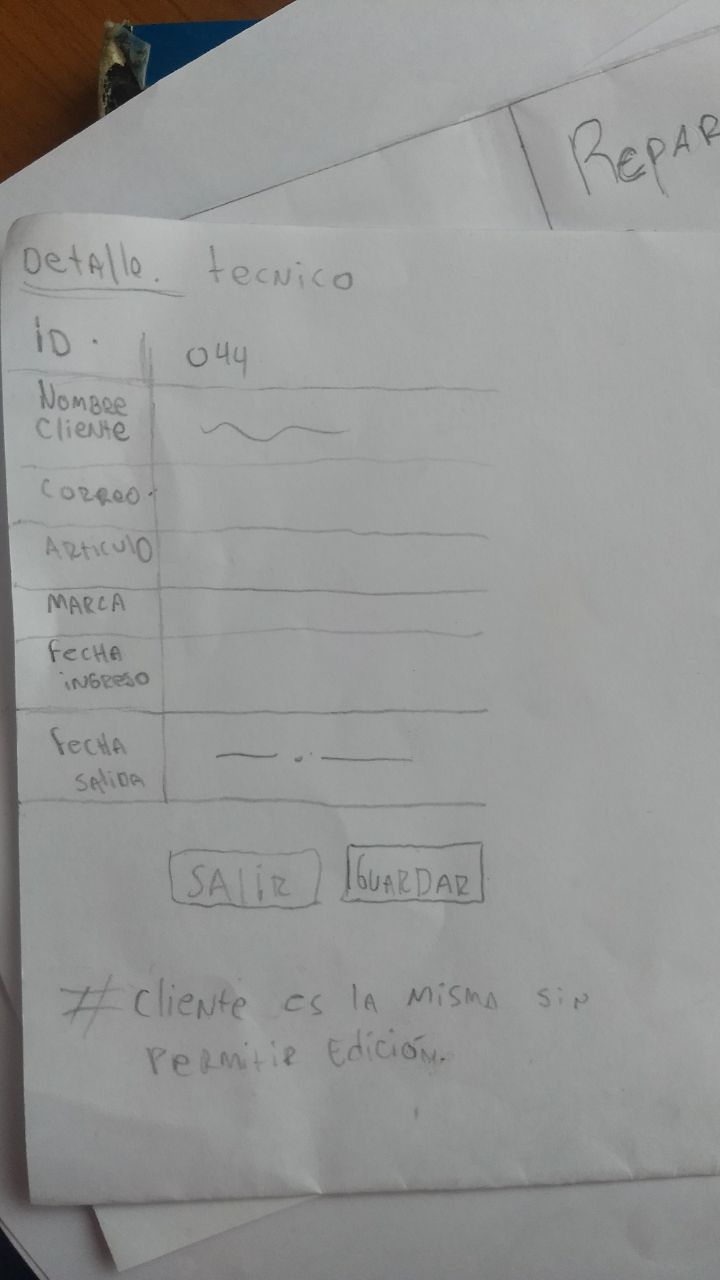 REPAR
Detalle. tecnico
ID. 044
Nombre
Cliente
Correo.
Articulo
Marca
Fecha
ingreso
Fecha
Salida
SALIR GUARDAR
# Cliente es la misma sin
permitir Edición.